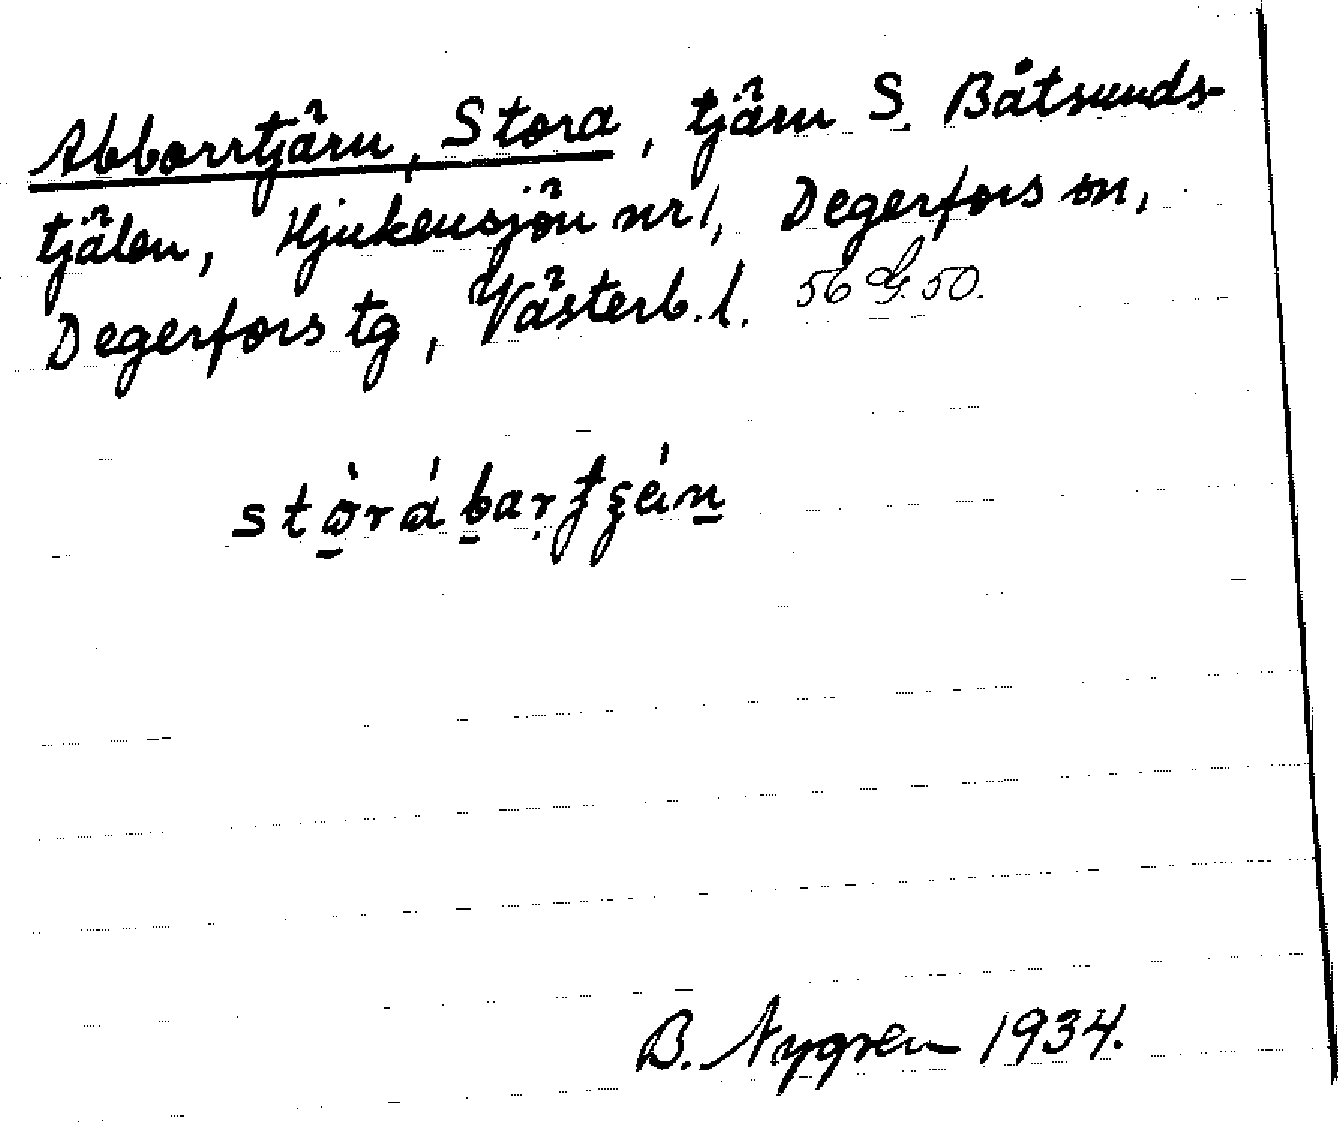 Abborrtjärn, Stora, tjärn S. Båtsunds-
tjälen, Hjukensjön nr 1, Degerfors sn,
Degerfors tg, Västerb. l. 56 G. 50.
B. Nygren 1934.